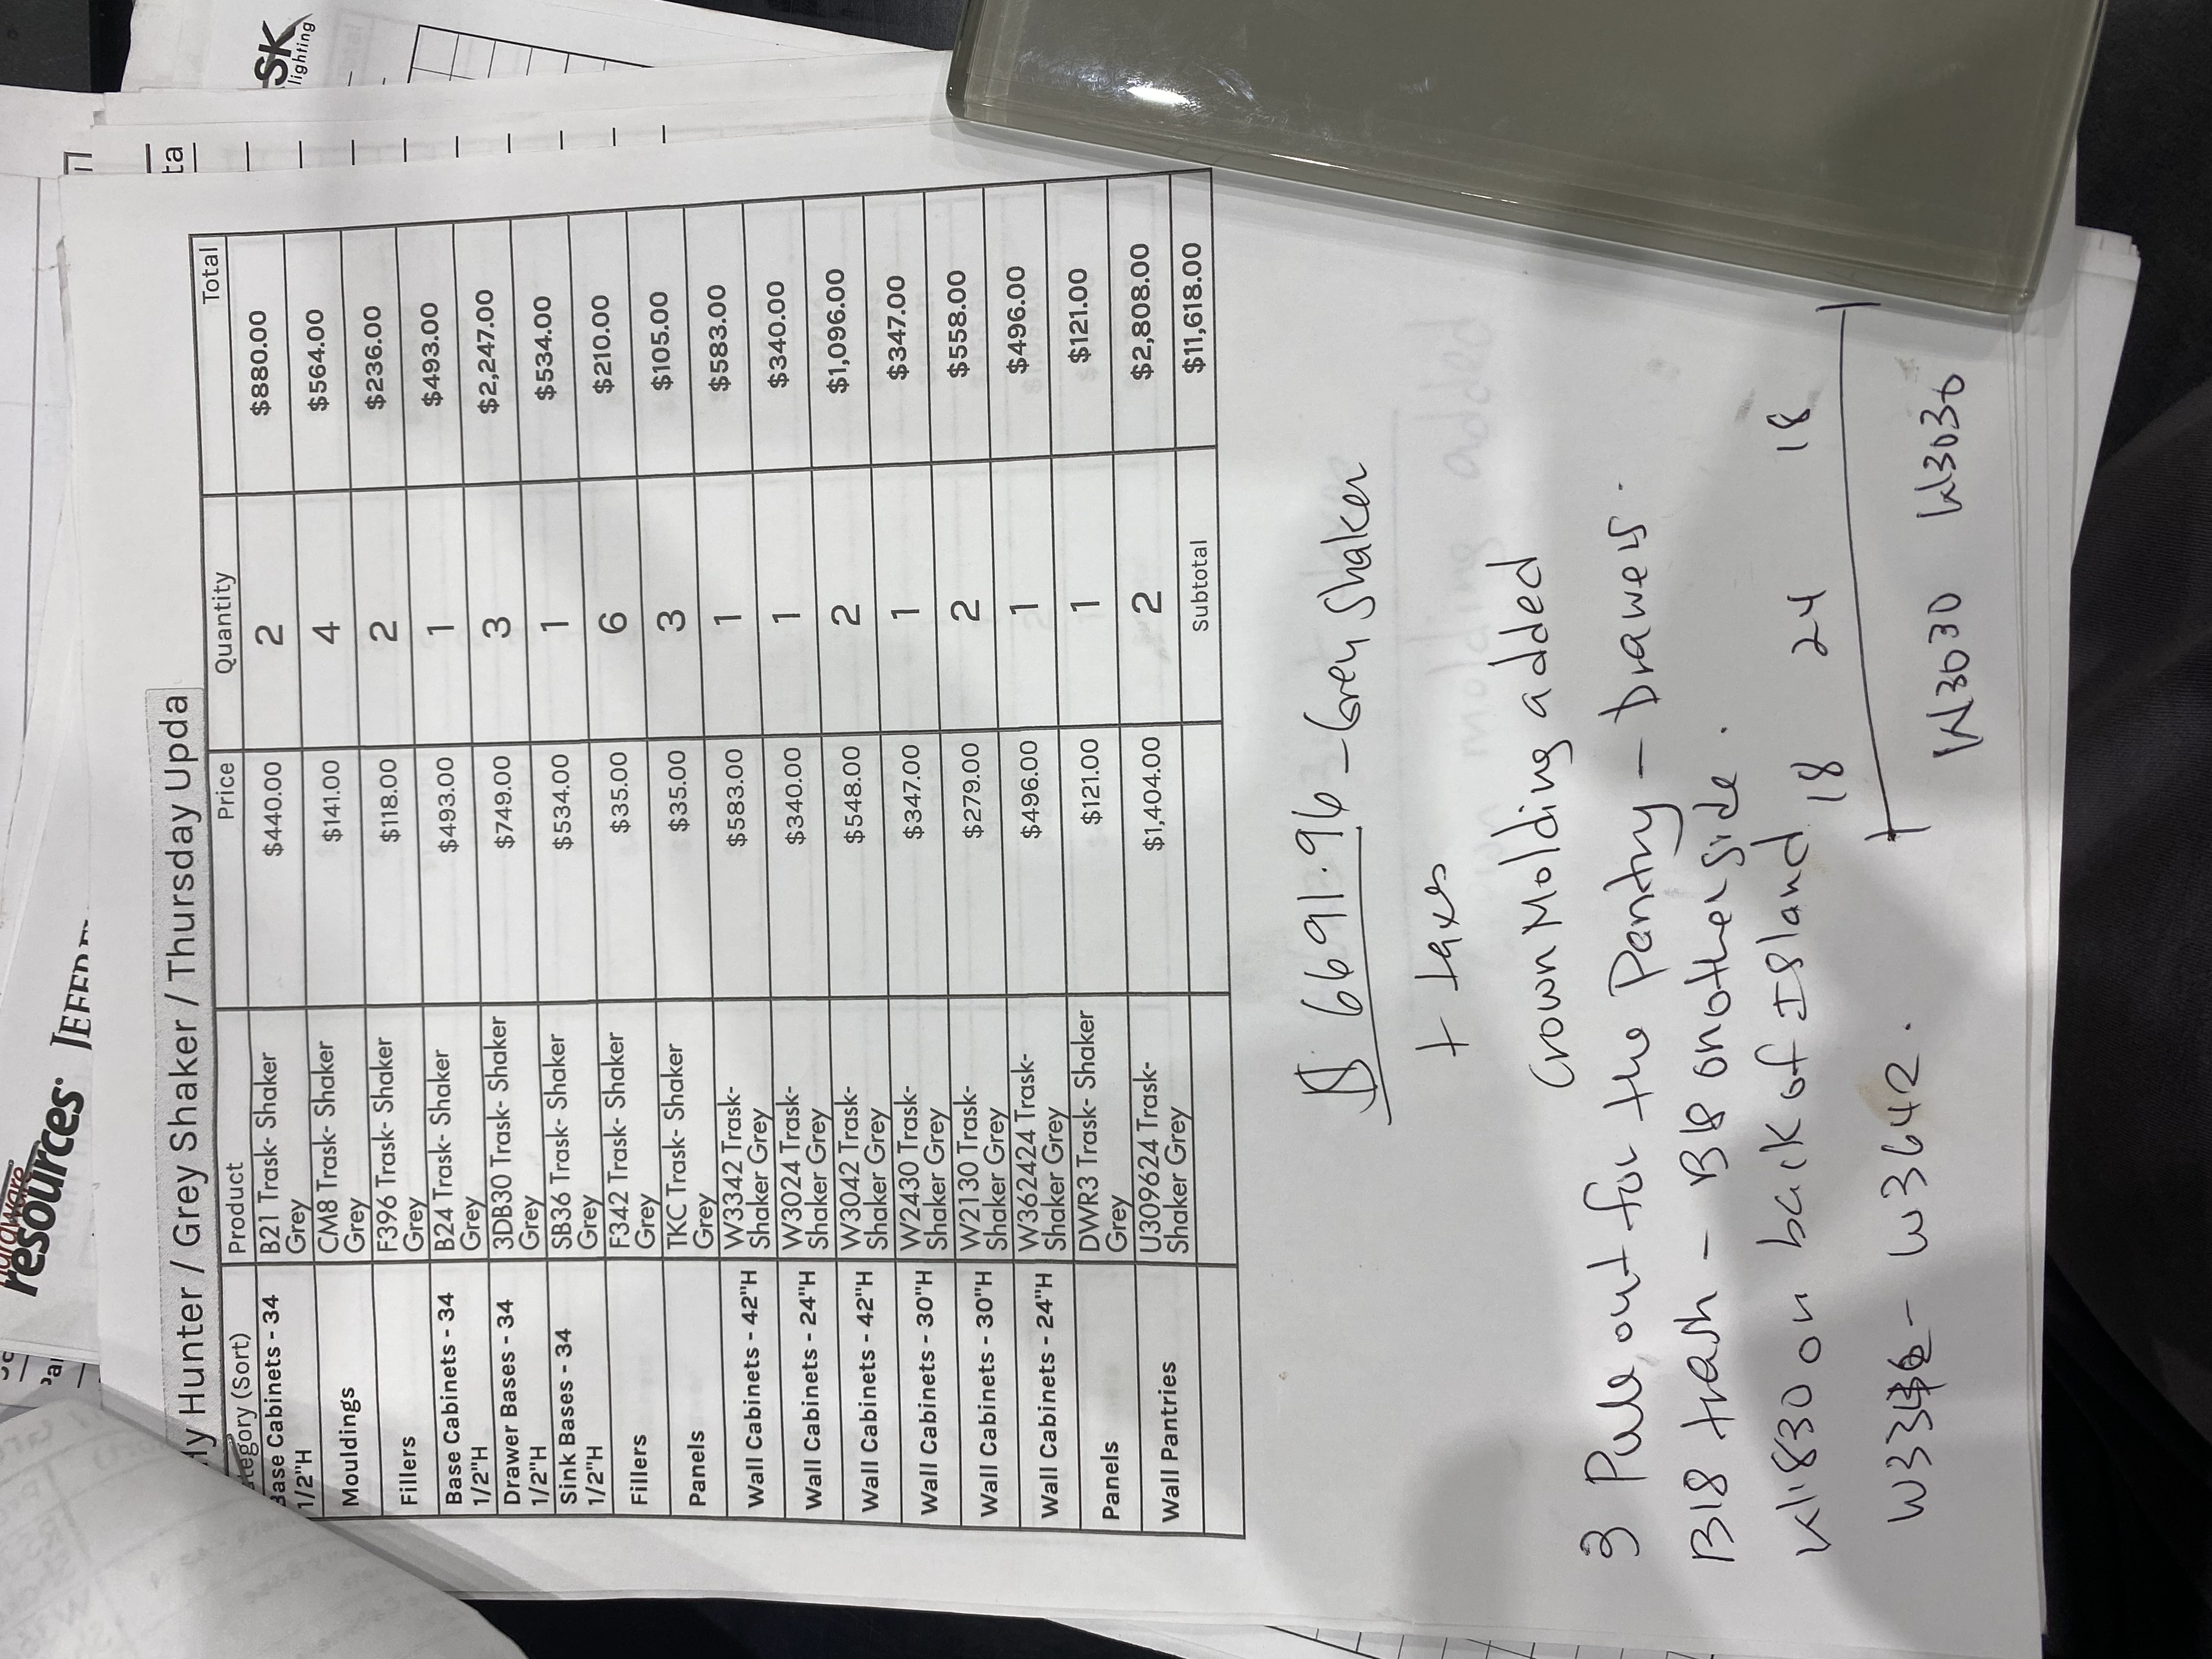 SK
lighting
resources
ly Hunter / Grey Shaker / Thursday Upda
ta
tegory (Sort) Product Price Quantity Total
Base Cabinets - 34 1/2"H B21 Trask- Shaker Grey $440.00 2 $880.00
Mouldings CM8 Trask- Shaker Grey $141.00 4 $564.00
Fillers F396 Trask- Shaker Grey $118.00 2 $236.00
Base Cabinets - 34 1/2"H B24 Trask- Shaker Grey $493.00 1 $493.00
Drawer Bases - 34 1/2"H 3DB30 Trask- Shaker Grey $749.00 3 $2,247.00
Sink Bases - 34 1/2"H SB36 Trask- Shaker Grey $534.00 1 $534.00
Fillers F342 Trask- Shaker Grey $35.00 6 $210.00
Panels TKC Trask- Shaker Grey $35.00 3 $105.00
Wall Cabinets - 42"H W3342 Trask- Shaker Grey $583.00 1 $583.00
Wall Cabinets - 24"H W3024 Trask- Shaker Grey $340.00 1 $340.00
Wall Cabinets - 42"H W3042 Trask- Shaker Grey $548.00 2 $1,096.00
Wall Cabinets - 30"H W2430 Trask- Shaker Grey $347.00 1 $347.00
Wall Cabinets - 30"H W2130 Trask- Shaker Grey $279.00 2 $558.00
Wall Cabinets - 24"H W362424 Trask- Shaker Grey $496.00 1 $496.00
Panels DWR3 Trask- Shaker Grey $121.00 1 $121.00
Wall Pantries U309624 Trask- Shaker Grey $1,404.00 2 $2,808.00
Subtotal $11,618.00
$ 6691.96 - Grey Shaker
+ taxes
Crown Molding added
3 Pull out for the Pantry - Drawers.
B18 trash - B18 on other side.
W1830 on back of Island. 18 24 18
- W3642.
W3030 W3030